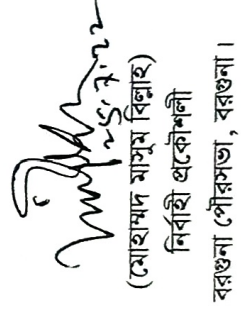 ২৫.৭.২২
(মোহাম্মদ মাসুম বিল্লাহ)
নির্বাহী প্রকৌশলী
বরগুনা পৌরসভা, বরগুনা।